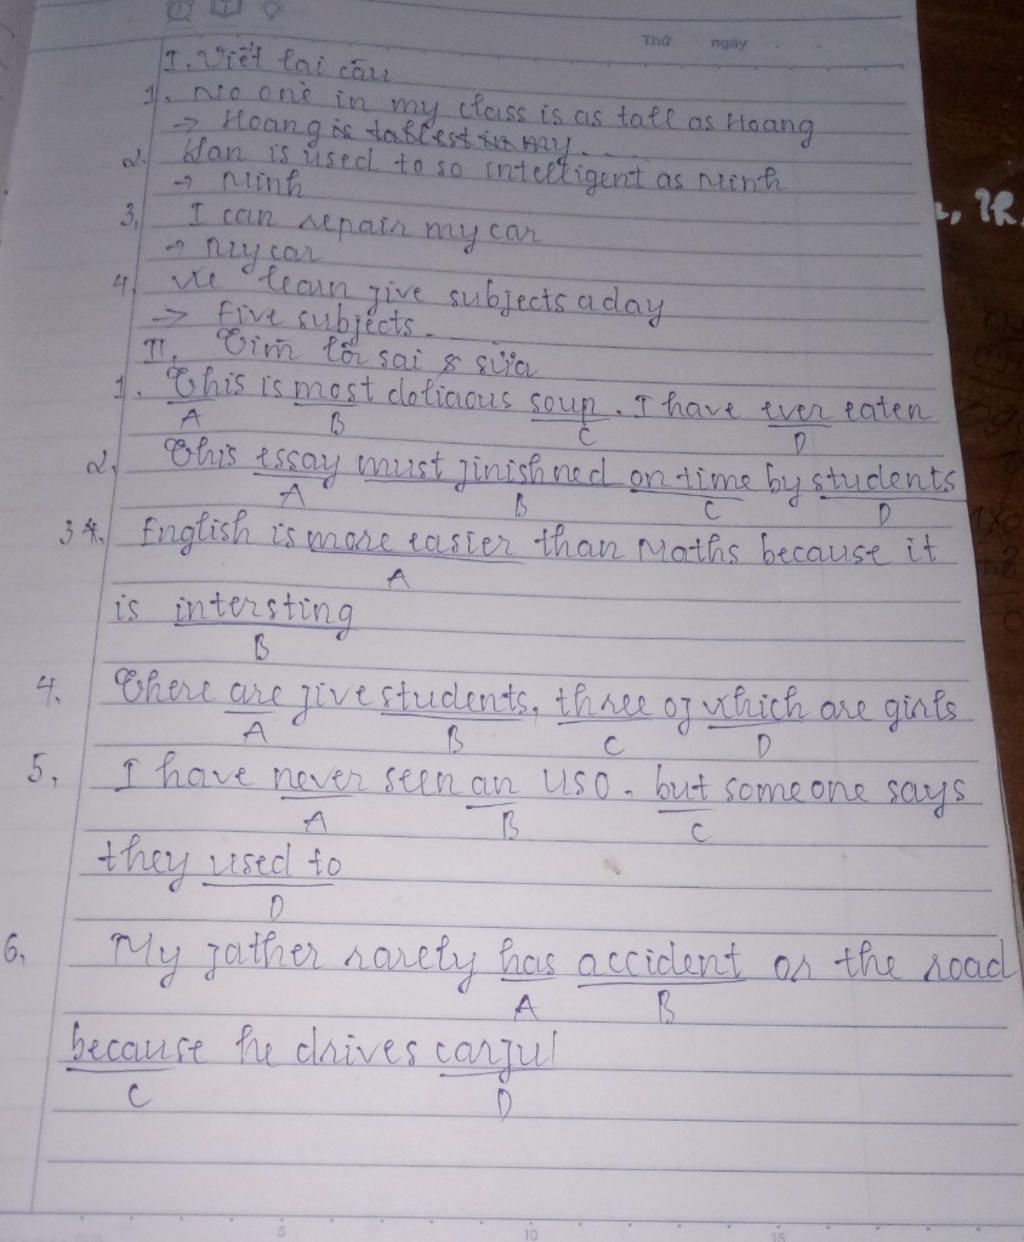 Thứ ngày
I. Viết lại câu
1. No one in my class is as tall as Hoang
→ Hoang is tallest in my
2. Nan is used to so intelligent as Minh
→ Minh
3, I can repair my car
→ My car
4, We learn five subjects a day
→ Five subjects
II, Tìm lỗi sai & sửa
1. This is most doliaous soup. I have ever eaten
A B C D
2, This essay must finishned on time by students
A B C D
3 English is more easier than Maths because it
A
is intersting
B
4. There are five students, three of which are girls
A B C D
5. I have never seen an USO. but someone says
A B C
they used to
D
6, My father rarely has accident on the road
A B
because he drives carful
C D
5 10 15